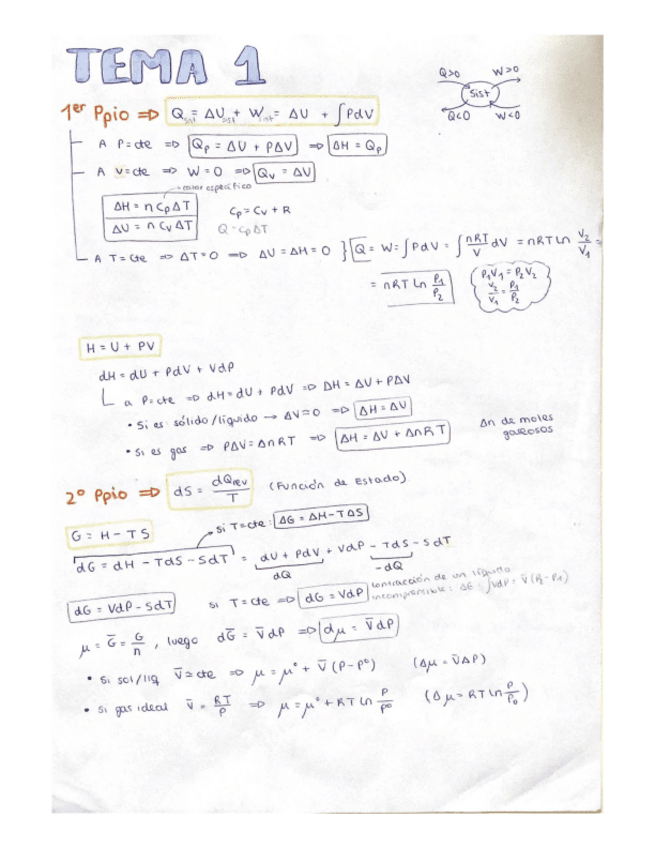 TEMA 1
Q>0 W>0
Sist
Q<0 W<0
1er Ppio ⇒ Q sist = ΔU sist + W int = ΔU + ∫PdV
A P=cte ⇒ Qp = ΔU + PΔV ⇒ ΔH = Qp
A V=cte ⇒ W=0 ⇒ Qv = ΔU
calor específico
ΔH = n Cp ΔT
ΔU = n Cv ΔT
Cp = Cv + R
Q = Cp ΔT
A T=cte ⇒ ΔT=0 ⇒ ΔU=ΔH=0 } Q = W = ∫PdV = ∫ nRT/V dV = nRT Ln V2/V1 =
= nRT Ln P1/P2
P1V1 = P2V2
V2/V1 = P1/P2
H = U + PV
dH = dU + PdV + VdP
a P=cte ⇒ dH = dU + PdV ⇒ ΔH = ΔU + PΔV
• Si es sólido/líquido → ΔV≃0 ⇒ ΔH = ΔU
• Si es gas ⇒ PΔV = ΔnRT ⇒ ΔH = ΔU + ΔnRT
Δn de moles
gaseosos
2º Ppio ⇒ dS = dQrev/T (Función de Estado)
si T=cte: ΔG = ΔH - TΔS
G = H - TS
dG = dH - TdS - SdT = dU + PdV + VdP - TdS - SdT
dQ -dQ
dG = VdP - SdT si T=cte ⇒ dG = VdP
contracción de un líquido
incompresible: ΔG = ∫VdP = V(P2-P1)
μ = G̅ = G/n, luego dG̅ = V̅dP ⇒ dμ = V̅dP
• Si sol/liq V̅≃cte ⇒ μ = μ° + V̅(P-P°) (Δμ = V̅ΔP)
• Si gas ideal V̅ = RT/P ⇒ μ = μ° + RT Ln P/P° (Δμ = RT Ln P/P0)